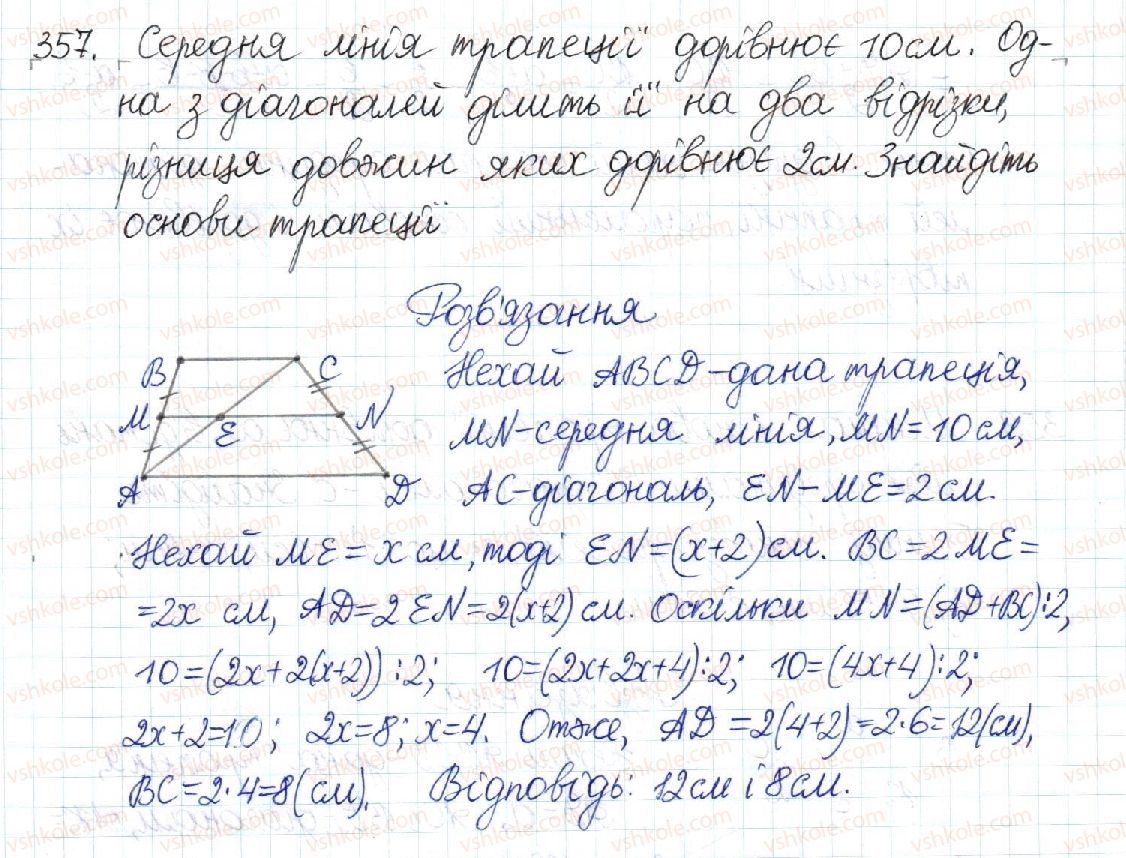 357. Середня лінія трапеції дорівнює 10 см. Од-
на з діагоналей ділить її на два відрізки,
різниця довжин яких дорівнює 2 см. Знайдіть
основи трапеції
Розв'язання
B C
M E N
A D
Нехай ABCD - дана трапеція,
MN - середня лінія, MN = 10 см,
AC - діагональ, EN - ME = 2 см.
Нехай ME = x см, тоді EN = (x+2) см. BC = 2 ME =
= 2x см, AD = 2 EN = 2(x+2) см. Оскільки MN = (AD + BC) : 2,
10 = (2x + 2(x+2)) : 2; 10 = (2x + 2x + 4) : 2; 10 = (4x + 4) : 2;
2x + 2 = 10; 2x = 8; x = 4. Отже, AD = 2(4+2) = 2·6 = 12 (см),
BC = 2·4 = 8 (см). Відповідь: 12 см і 8 см.
vshkole.com